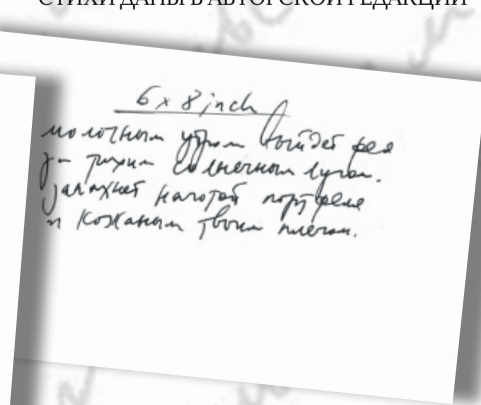 СТИХИ ДАНЫ В АВТОРСКОЙ РЕДАКЦИИ
6 x 8 inch
молочным утром выйдет фея
за тихим солнечным лучом.
запахнет наготой портфеля
и кожаным твоим плечом.